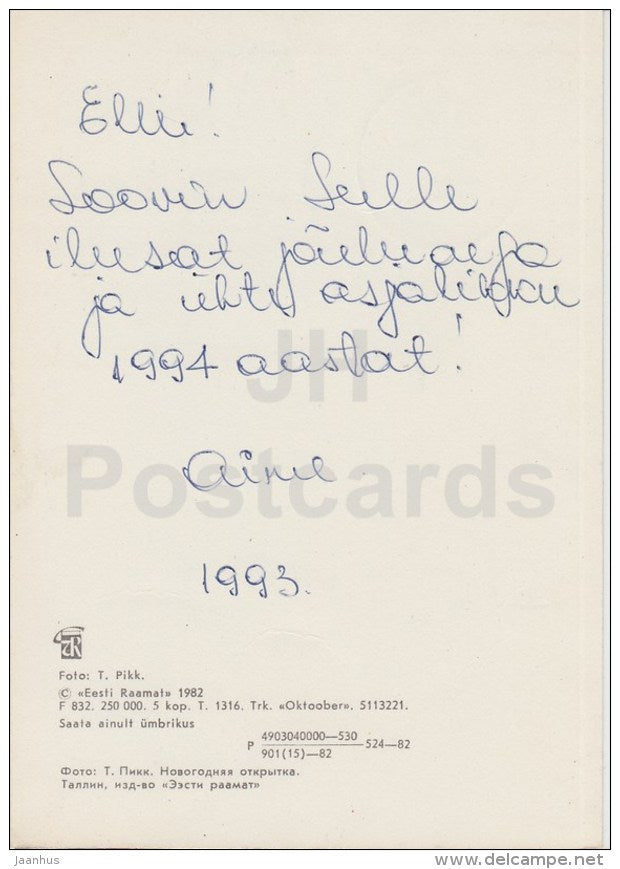 Elli!
Soovin Sulle
ilusat jõuluaega
ja ühte asjalikku
1994 aastat!
JH
Postcards
Aime
1993.
Foto: T. Pikk.
© «Eesti Raamat» 1982
F 832. 250 000. 5 kop. T. 1316. Trk. «Oktoober». 5113221.
Saata ainult ümbrikus
P 4903040000—530
901(15)—82
524—82
Фото: Т. Пикк. Новогодняя открытка.
Таллин, изд-во «Ээсти раамат»
jaanhus
www.delcampe.net